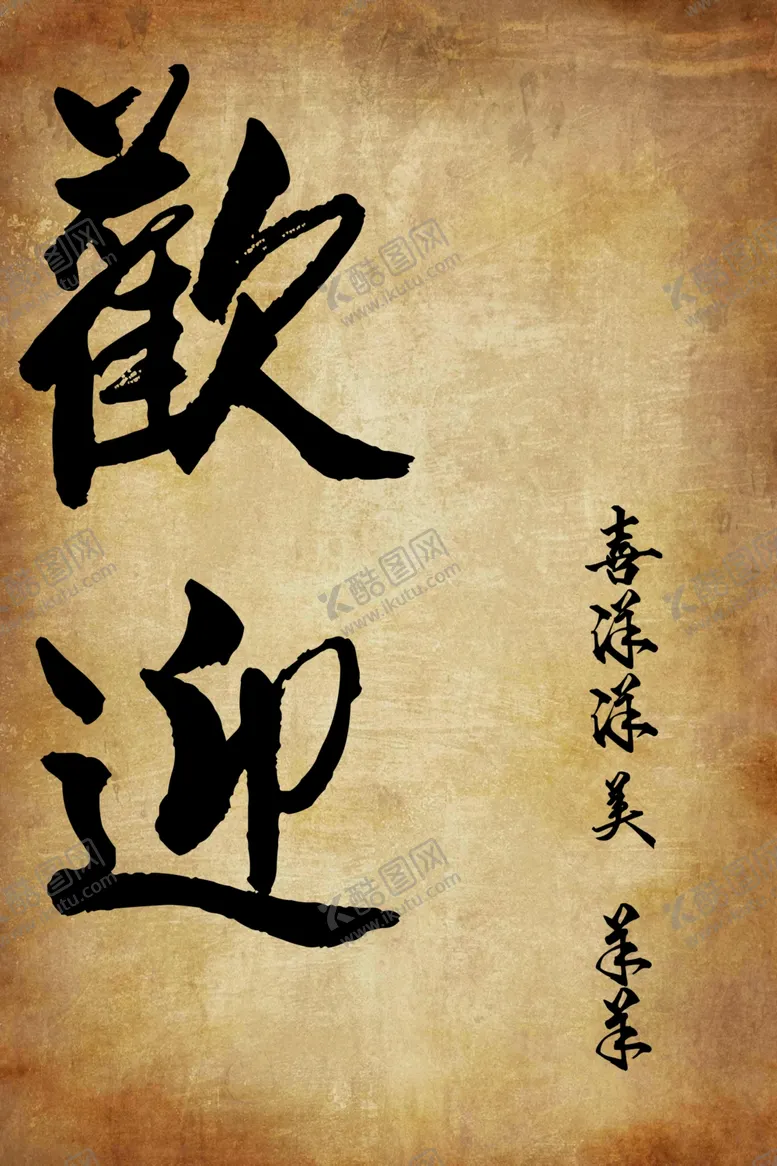 喜洋洋美 羊羊
歡迎
酷图网
www.ikutu.com